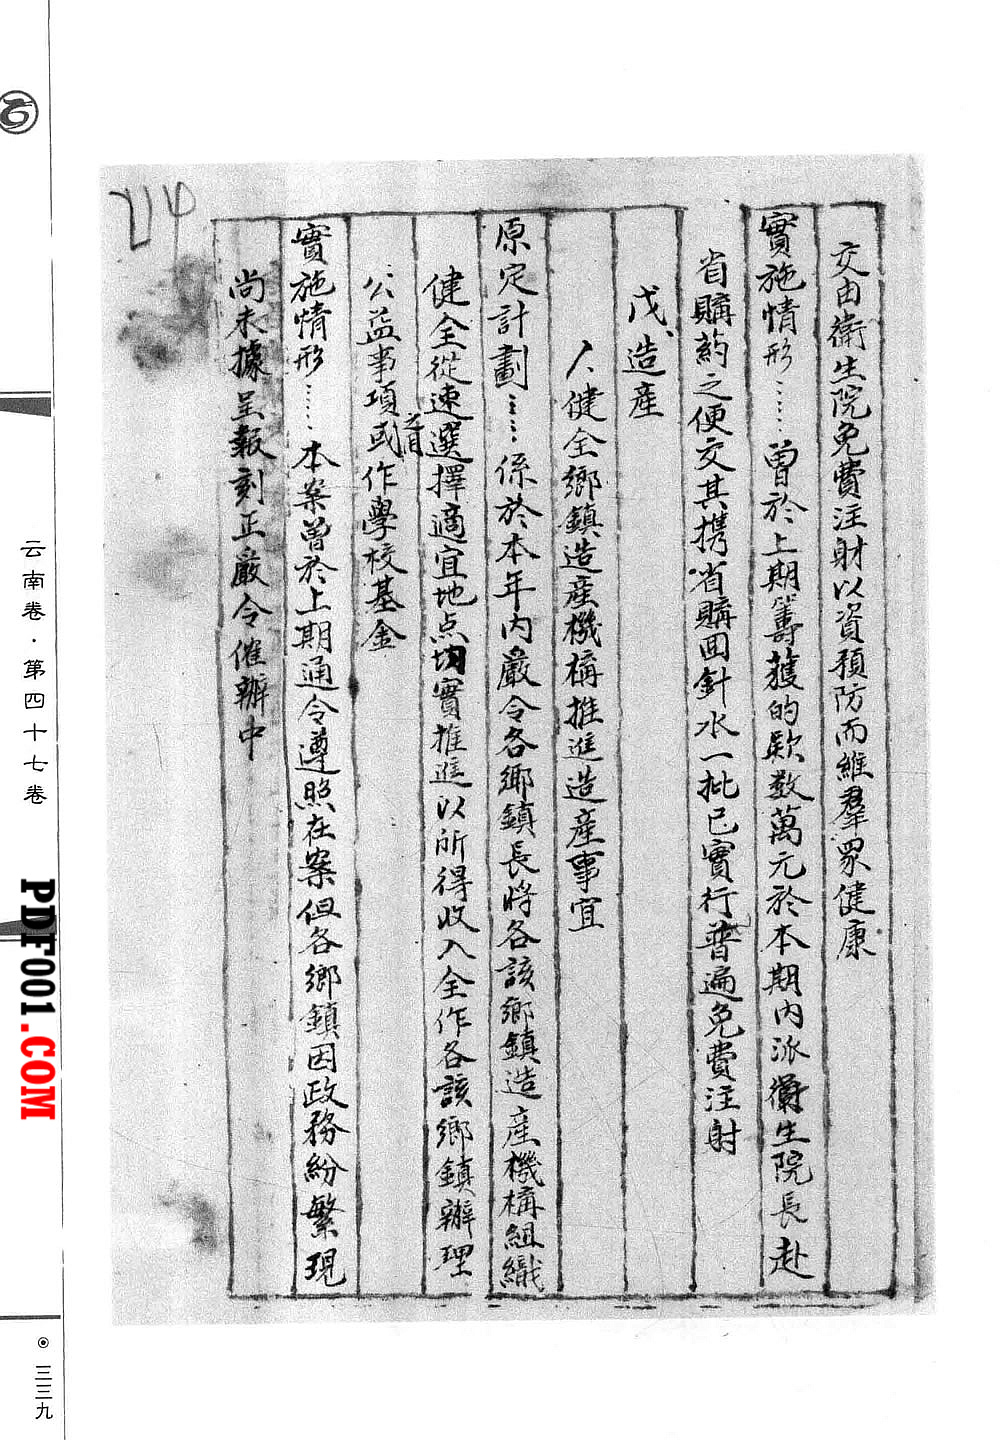 交由衛生院免費注財以資預防而維羣眾健康
實施情形……曾於上期籌獲的款数萬元於本期内派衛生院長赴
省購葯之便交其携省購囬針水一批已實行普遍免費注射
戊、造産
人、健全鄉鎮造産機構推進造産事宜
原定計劃……係於本年内嚴令各鄉鎮長將各該鄉鎮造産機構組織
健全從速選擇適宜地点切實推進以所得收入全作各該鄉鎮辦理
公益事項或作學校基金
之用
實施情形……本案曽於上期通令遵照在案但各鄉鎮因政務紛繁現
尚未據呈報刻正嚴令催辦中
云南卷·第四十七卷
PDF001.COM
三三九